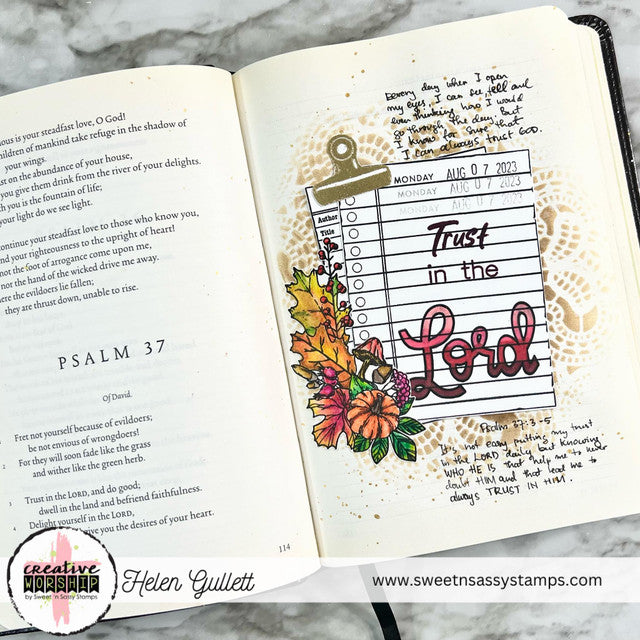 ious is your steadfast love, O God!
hildren of mankind take refuge in the shadow of
your wings.
st on the abundance of your house,
you give them drink from the river of your delights.
h you is the fountain of life;
your light do we see light.
ontinue your steadfast love to those who know you,
nd your righteousness to the upright of heart!
not the foot of arrogance come upon me,
not the hand of the wicked drive me away.
ere the evildoers lie fallen;
they are thrust down, unable to rise.
PSALM 37
Of David.
1 Fret not yourself because of evildoers;
be not envious of wrongdoers!
2 For they will soon fade like the grass
and wither like the green herb.
3 Trust in the LORD, and do good;
dwell in the land and befriend faithfulness.
4 Delight yourself in the LORD,
give you the desires of your heart.
114
Every day when I open
my eyes, I can feel and
how I would
go through the day but
I know for sure that
I can always trust GOD.
MONDAY AUG 07 2023
MONDAY AUG 07 2023
MONDAY AUG 07 2023
Author
Title
Trust
in the
Lord
Psalm 37:3-5
It's not easy putting my trust
in the LORD daily but knowing
WHO HE IS that help me to never
doubt HIM and that lead me to
always TRUST IN HIM.
creative
WORSHIP
by Sweet 'n Sassy Stamps
Helen Gullett
www.sweetnsassystamps.com